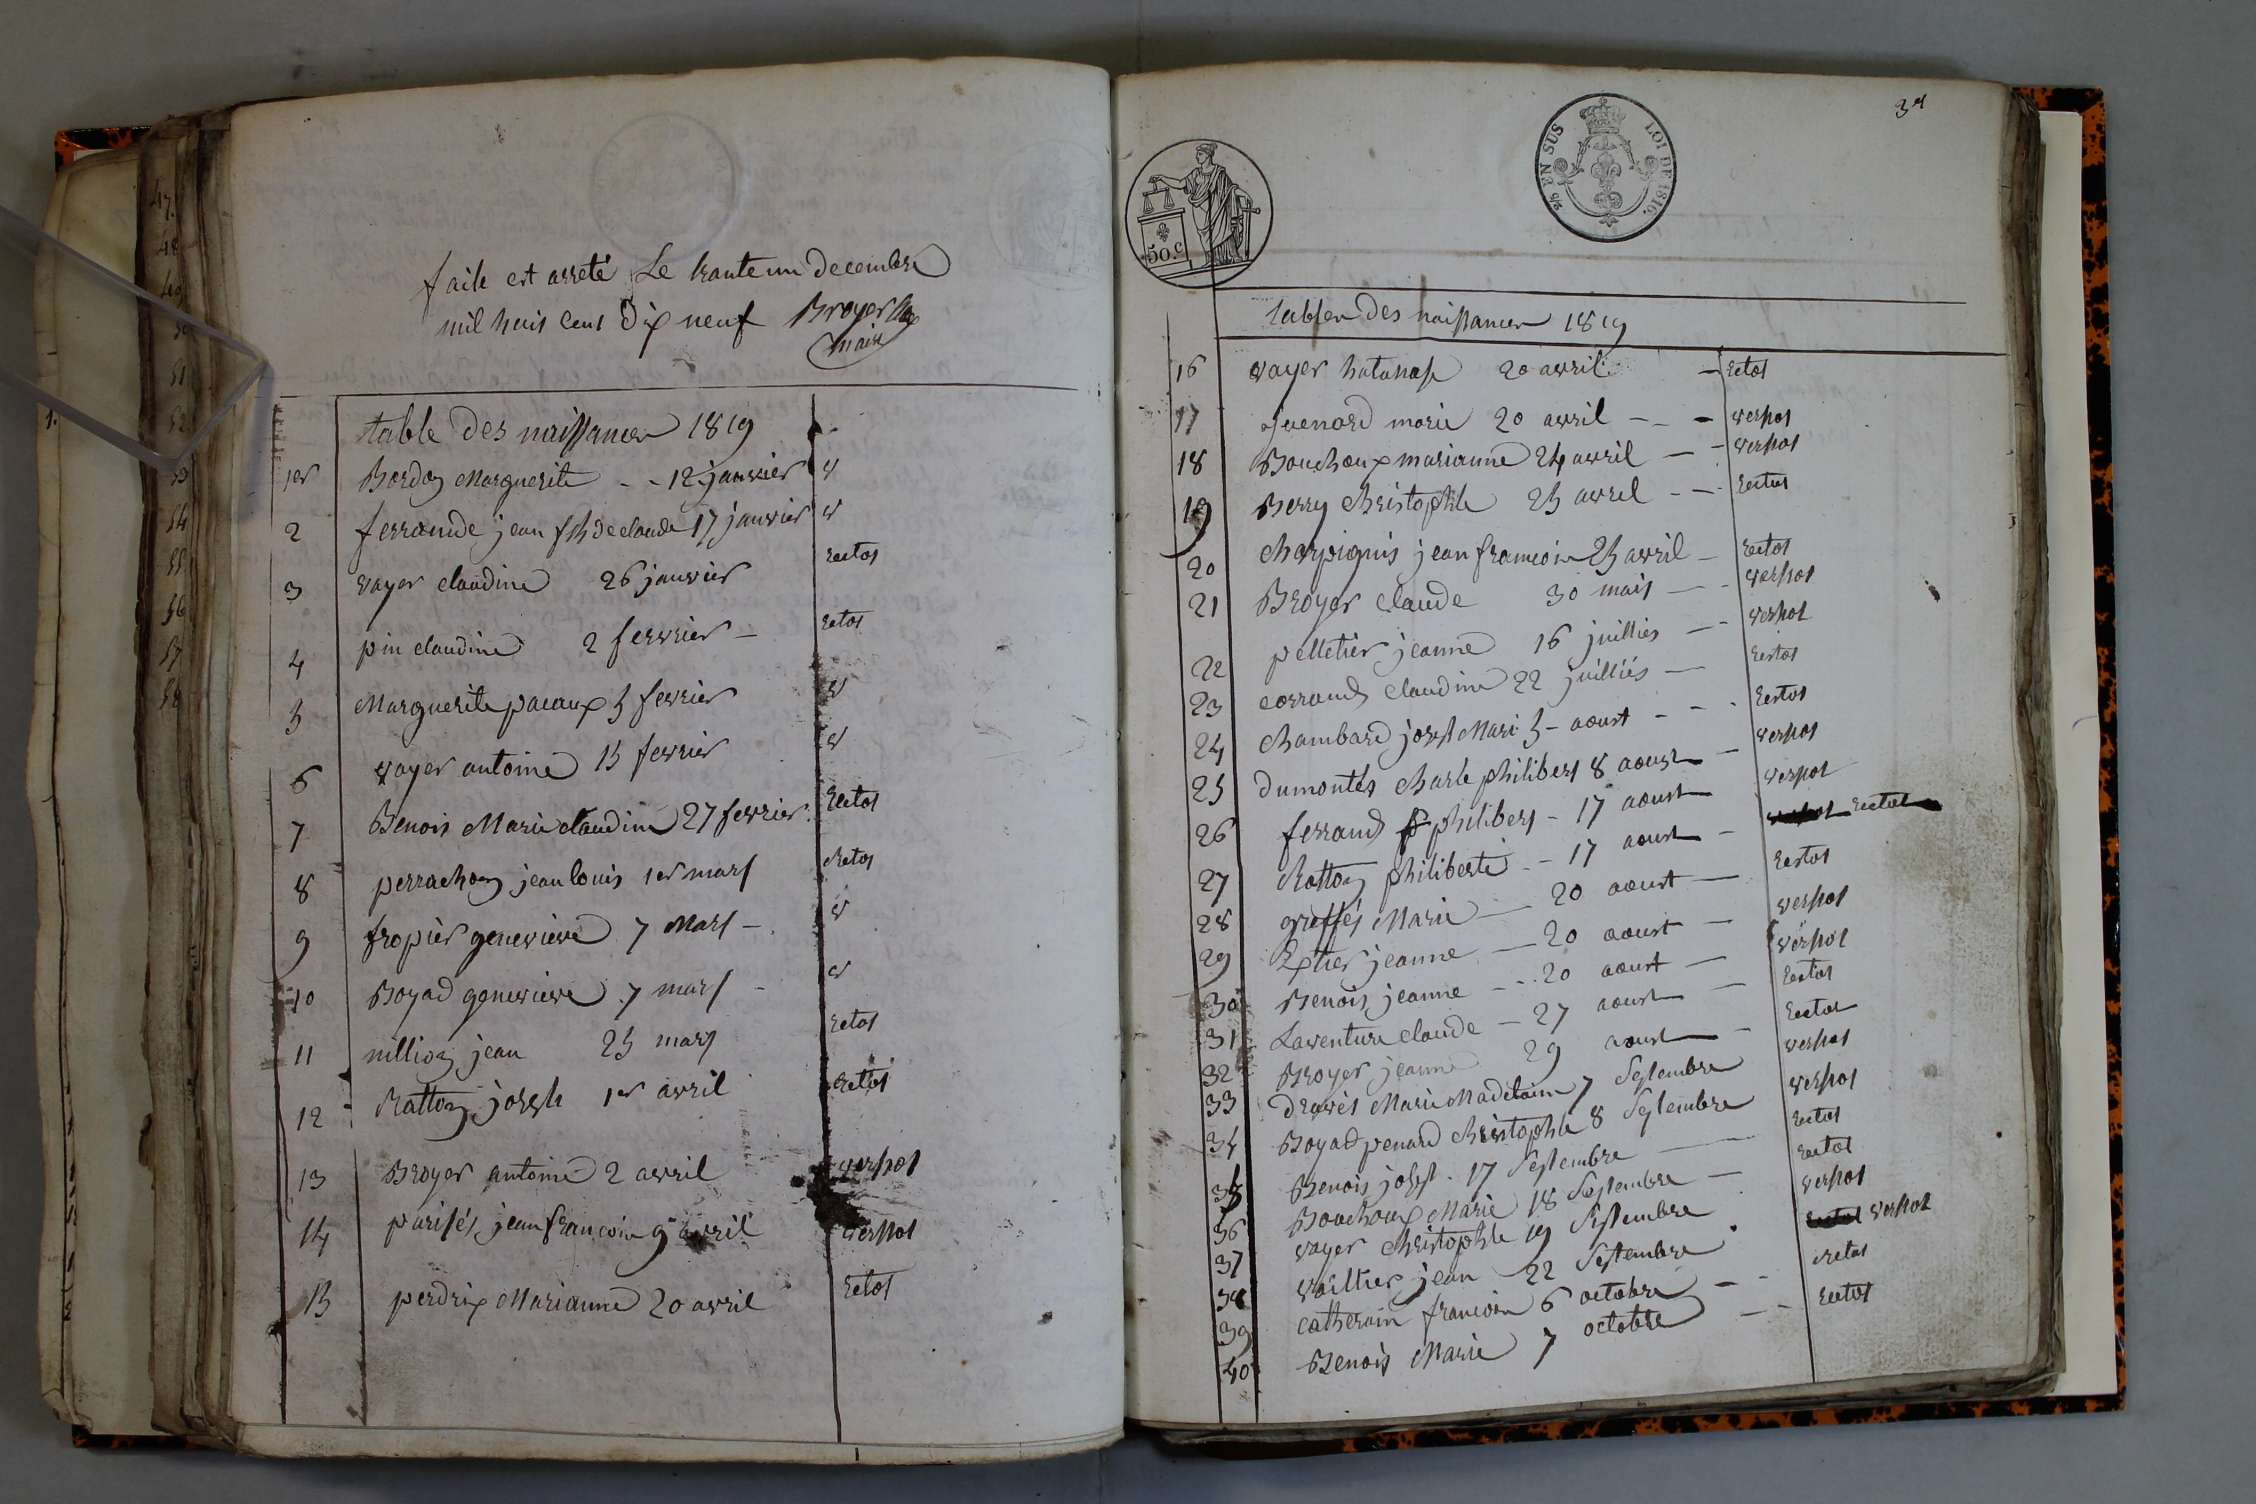 faite et arreté Le trante un decembre
mil huit cent dix neuf Broyer
maire
table des naissances 1819
1er Bordoz Marguerite - - 12 janvier v
2 ferrande jean fils de claude 17 janvier v
3 vayer claudine 26 janvier Rectos
4 pin claudine 2 fevvrier - Rectos
5 Marguerite pacaux 5 fevrier v
6 vayer antoine 15 fevrier v
7 Benois Marie claudine 27 fevrier Rectos
8 perrachoz jean louis 1er mars Rectos
9 fropier genevieve 7 Mars - v
10 Boyad genevieve 7 mars - v
11 nillioz jean 25 mars Rectos
12 Rattoz joseph 1er avril Rectos
13 Broyer antoine 2 avril verssos
14 parisés jean francois 9 avril verssos
15 perdrix Marianne 20 avril Rectos
47.
48
49
50
51
52
53
54
55
56
57
58
1.
3e
50.c
2/5 EN SUS LOI DE 1816.
tables des naissances 1819
16 vayer 20 avril - Rectos
17 juenard marie 20 avril - - - verssos
18 Bouchoux marianne 24 avril - - verssos
19 Berry christophle 25 avril - - Rectus
20 charpignis jean francois 25 avril - Rectos
21 Broyer claude 30 mais - - verssos
22 pelletier jeanne 16 juillies - - verssos
23 corrand claudine 22 juilliés - Rectos
24 chambard joseph Mari 5 - aoust - - - Rectos
25 dumontés charle philibert 8 aoust - verssos
26 ferrand philibert - 17 aoust verssos
27 Rattoz philiberte - 17 aoust - Rectus
28 greffés Marie - 20 aoust - Rectos
29 jeanne - 20 aoust - verssos
30 Benois jeanne - - 20 aoust - verssos
31 Laventure claude - 27 aoust - Rectos
32 Broyer jeanne 29 aoust - Rectos
33 dravés Marie Madelaine 7 Septembre verssos
34 Boyad penard christophle 8 Septembre verssos
35 Benois joseph . 17 Septembre - Rectos
36 Bouchoux Marie 18 Septembre - Rectos
37 vayer christophle 19 Septembre verssos
38 vaeltier jean 22 Septembre . verssos
39 catherain francois 6 octobre - - Rectos
40 Benois Marie 7 octobre - - Rectos